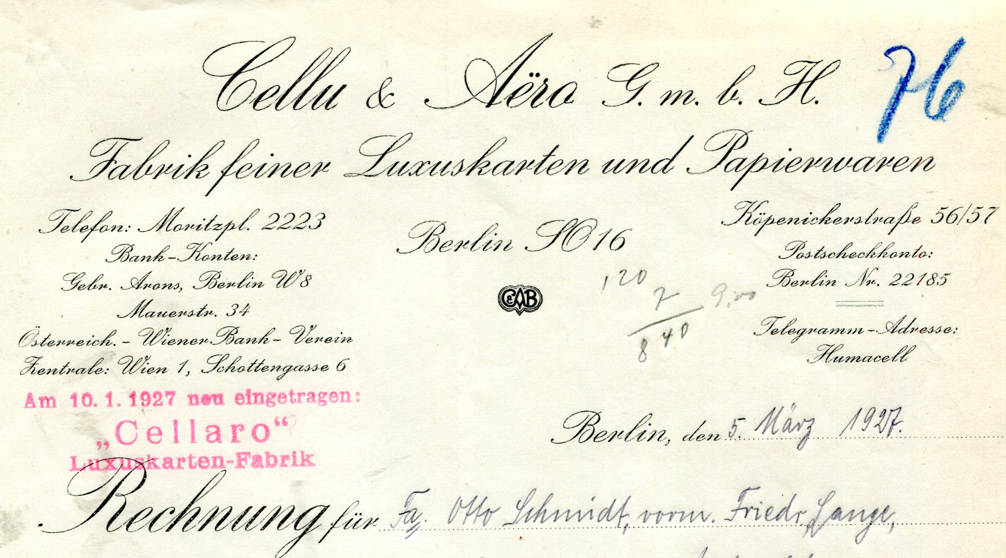 Cellu & Aëro G. m. b. H.
76
Fabrik feiner Luxuskarten und Papierwaren
Telefon: Moritzpl. 2223
Bank-Konten:
Gebr. Arons, Berlin W8
Mauerstr. 34
Österreich. - Wiener Bank - Verein
Zentrale: Wien 1, Schottengasse 6
Berlin SO 16
CAB
Köpenickerstraße 56/57
Postscheckkonto:
Berlin Nr. 22185
Telegramm-Adresse:
Humacell
1,20
7 9,00
8 40
Am 10. 1. 1927 neu eingetragen:
„Cellaro“
Luxuskarten-Fabrik
Berlin, den 5. März 1927.
Rechnung für Fa. Otto Schmidt, vorm. Friedr. Lange,